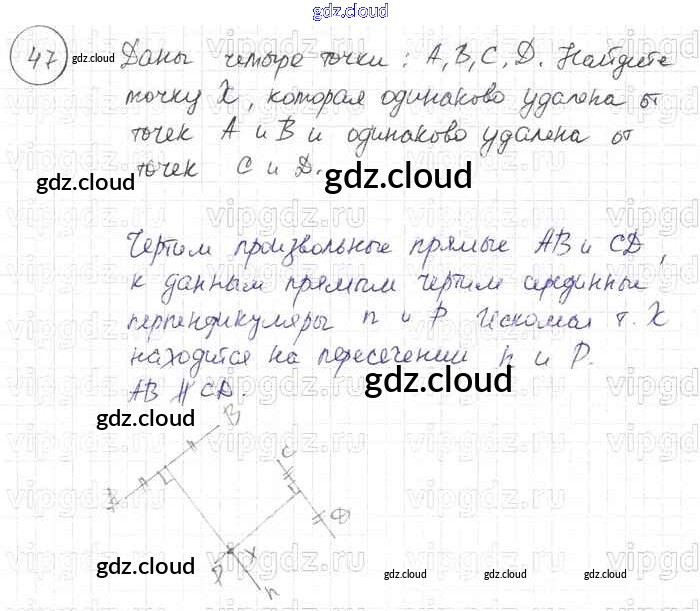 gdz.cloud
47 gdz.cloud Даны четыре точки: A, B, C, D. Найдите
точку X, которая одинаково удалена от
точек A и B и одинаково удалена от
точек C и D.
gdz.cloud gdz.cloud
Чертим произвольные прямые AB и CD,
к данным прямым чертим серединные
перпендикуляры n и p. Искомая т. X
находится на пересечении n и p.
AB ∦ CD.
gdz.cloud
gdz.cloud
B
C
A
D
X
P
n
gdz.cloud
gdz.cloud gdz.cloud gdz.cloud
vipgdz.ru